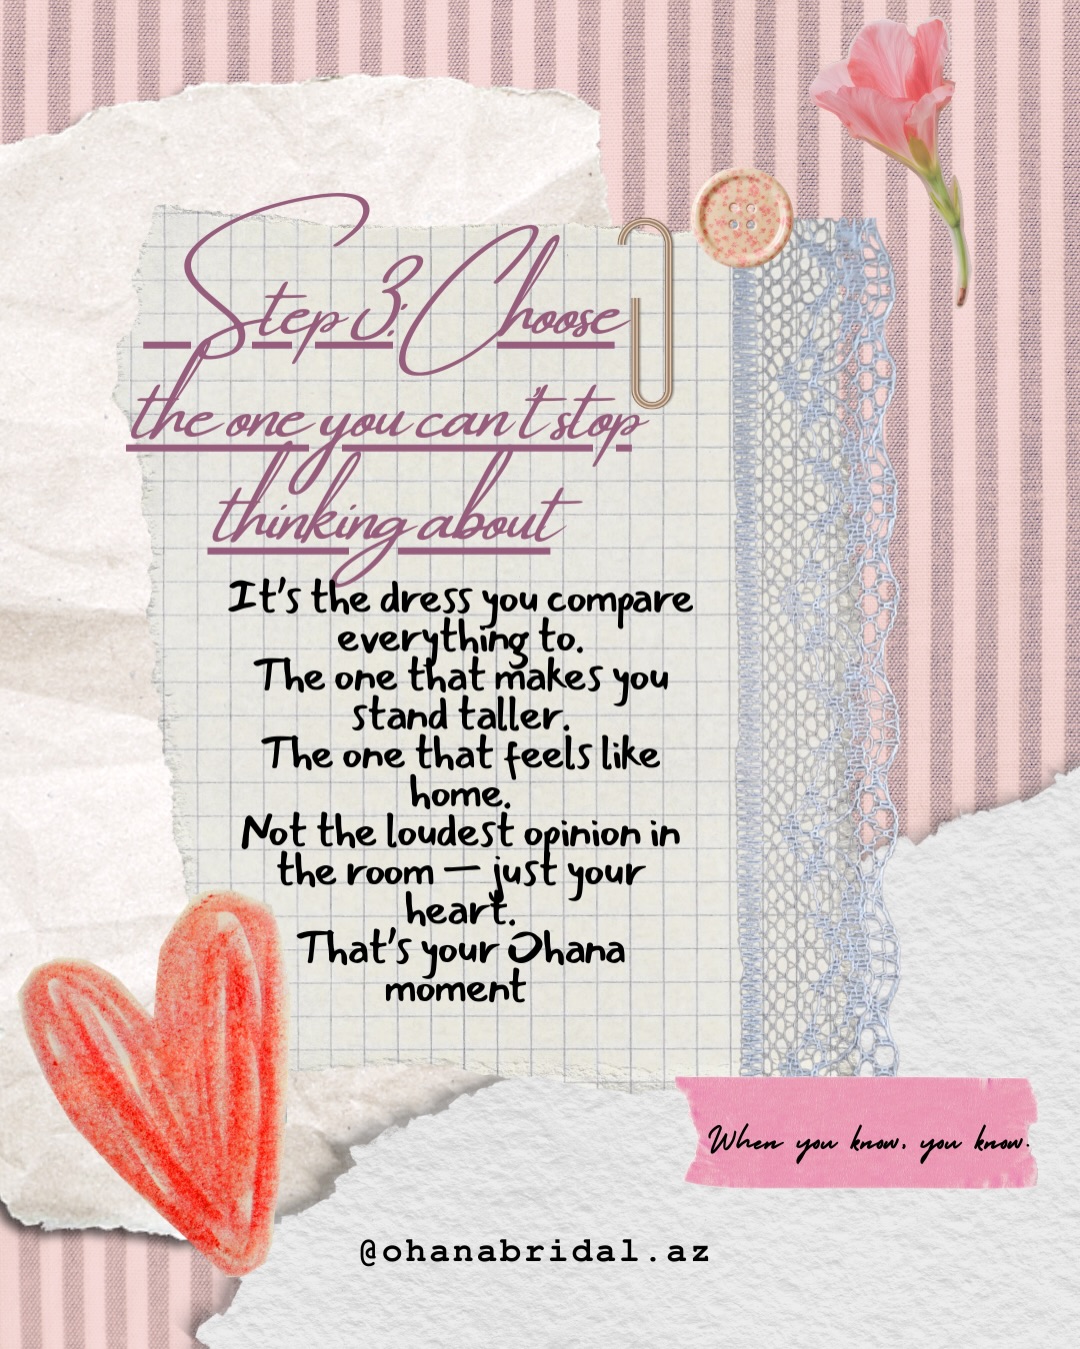 Step 3: Choose
the one you can't stop
thinking about
It's the dress you compare
everything to.
The one that makes you
stand taller.
The one that feels like
home.
Not the loudest opinion in
the room — just your
heart.
That's your Ohana
moment
When you know, you know.
@ohanabridal.az